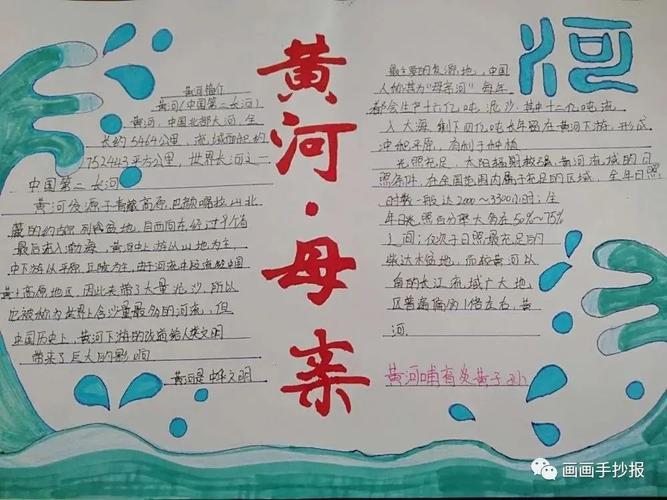 黄河·母亲
河
黄河简介
黄河(中国第二长河)
黄河,中国北部大河,全
长约5464公里,流域面积约
752443平方公里,世界长河之一
中国第二长河
黄河发源于青藏高原,巴颜喀拉山北
麓的约古宗列盆地,自西向东经过9个省
最后流入渤海,黄河中上游以山地为主
中下游以平原、丘陵为主,由于河流中段流经中国
黄土高原地区,因此夹带了大量泥沙,所以
也被称为世界上含沙量最多的河流,但
中国历史上,黄河下游的改道给人类文明
带来了巨大的影响
黄河是中华文明
最主要的发源地,中国
人称其为“母亲河”每年
都会生产十六亿吨泥沙,其中十二亿吨流
入大海,剩下四亿吨长年留在黄河下游,形成
冲积平原,有利于种植
光照充足,太阳辐射较强,黄河流域的日
照条件,在全国范围内属于充足的区域,全年日照
时数一般达2000~3300小时;全
年日照百分率大多在50%~75%
之间;仅次于日照最充足的
柴达木盆地,而较黄河以
南的长江流域广大地
区普遍偏多1倍左右,黄
河.
黄河哺育炎黄子孙
画画手抄报